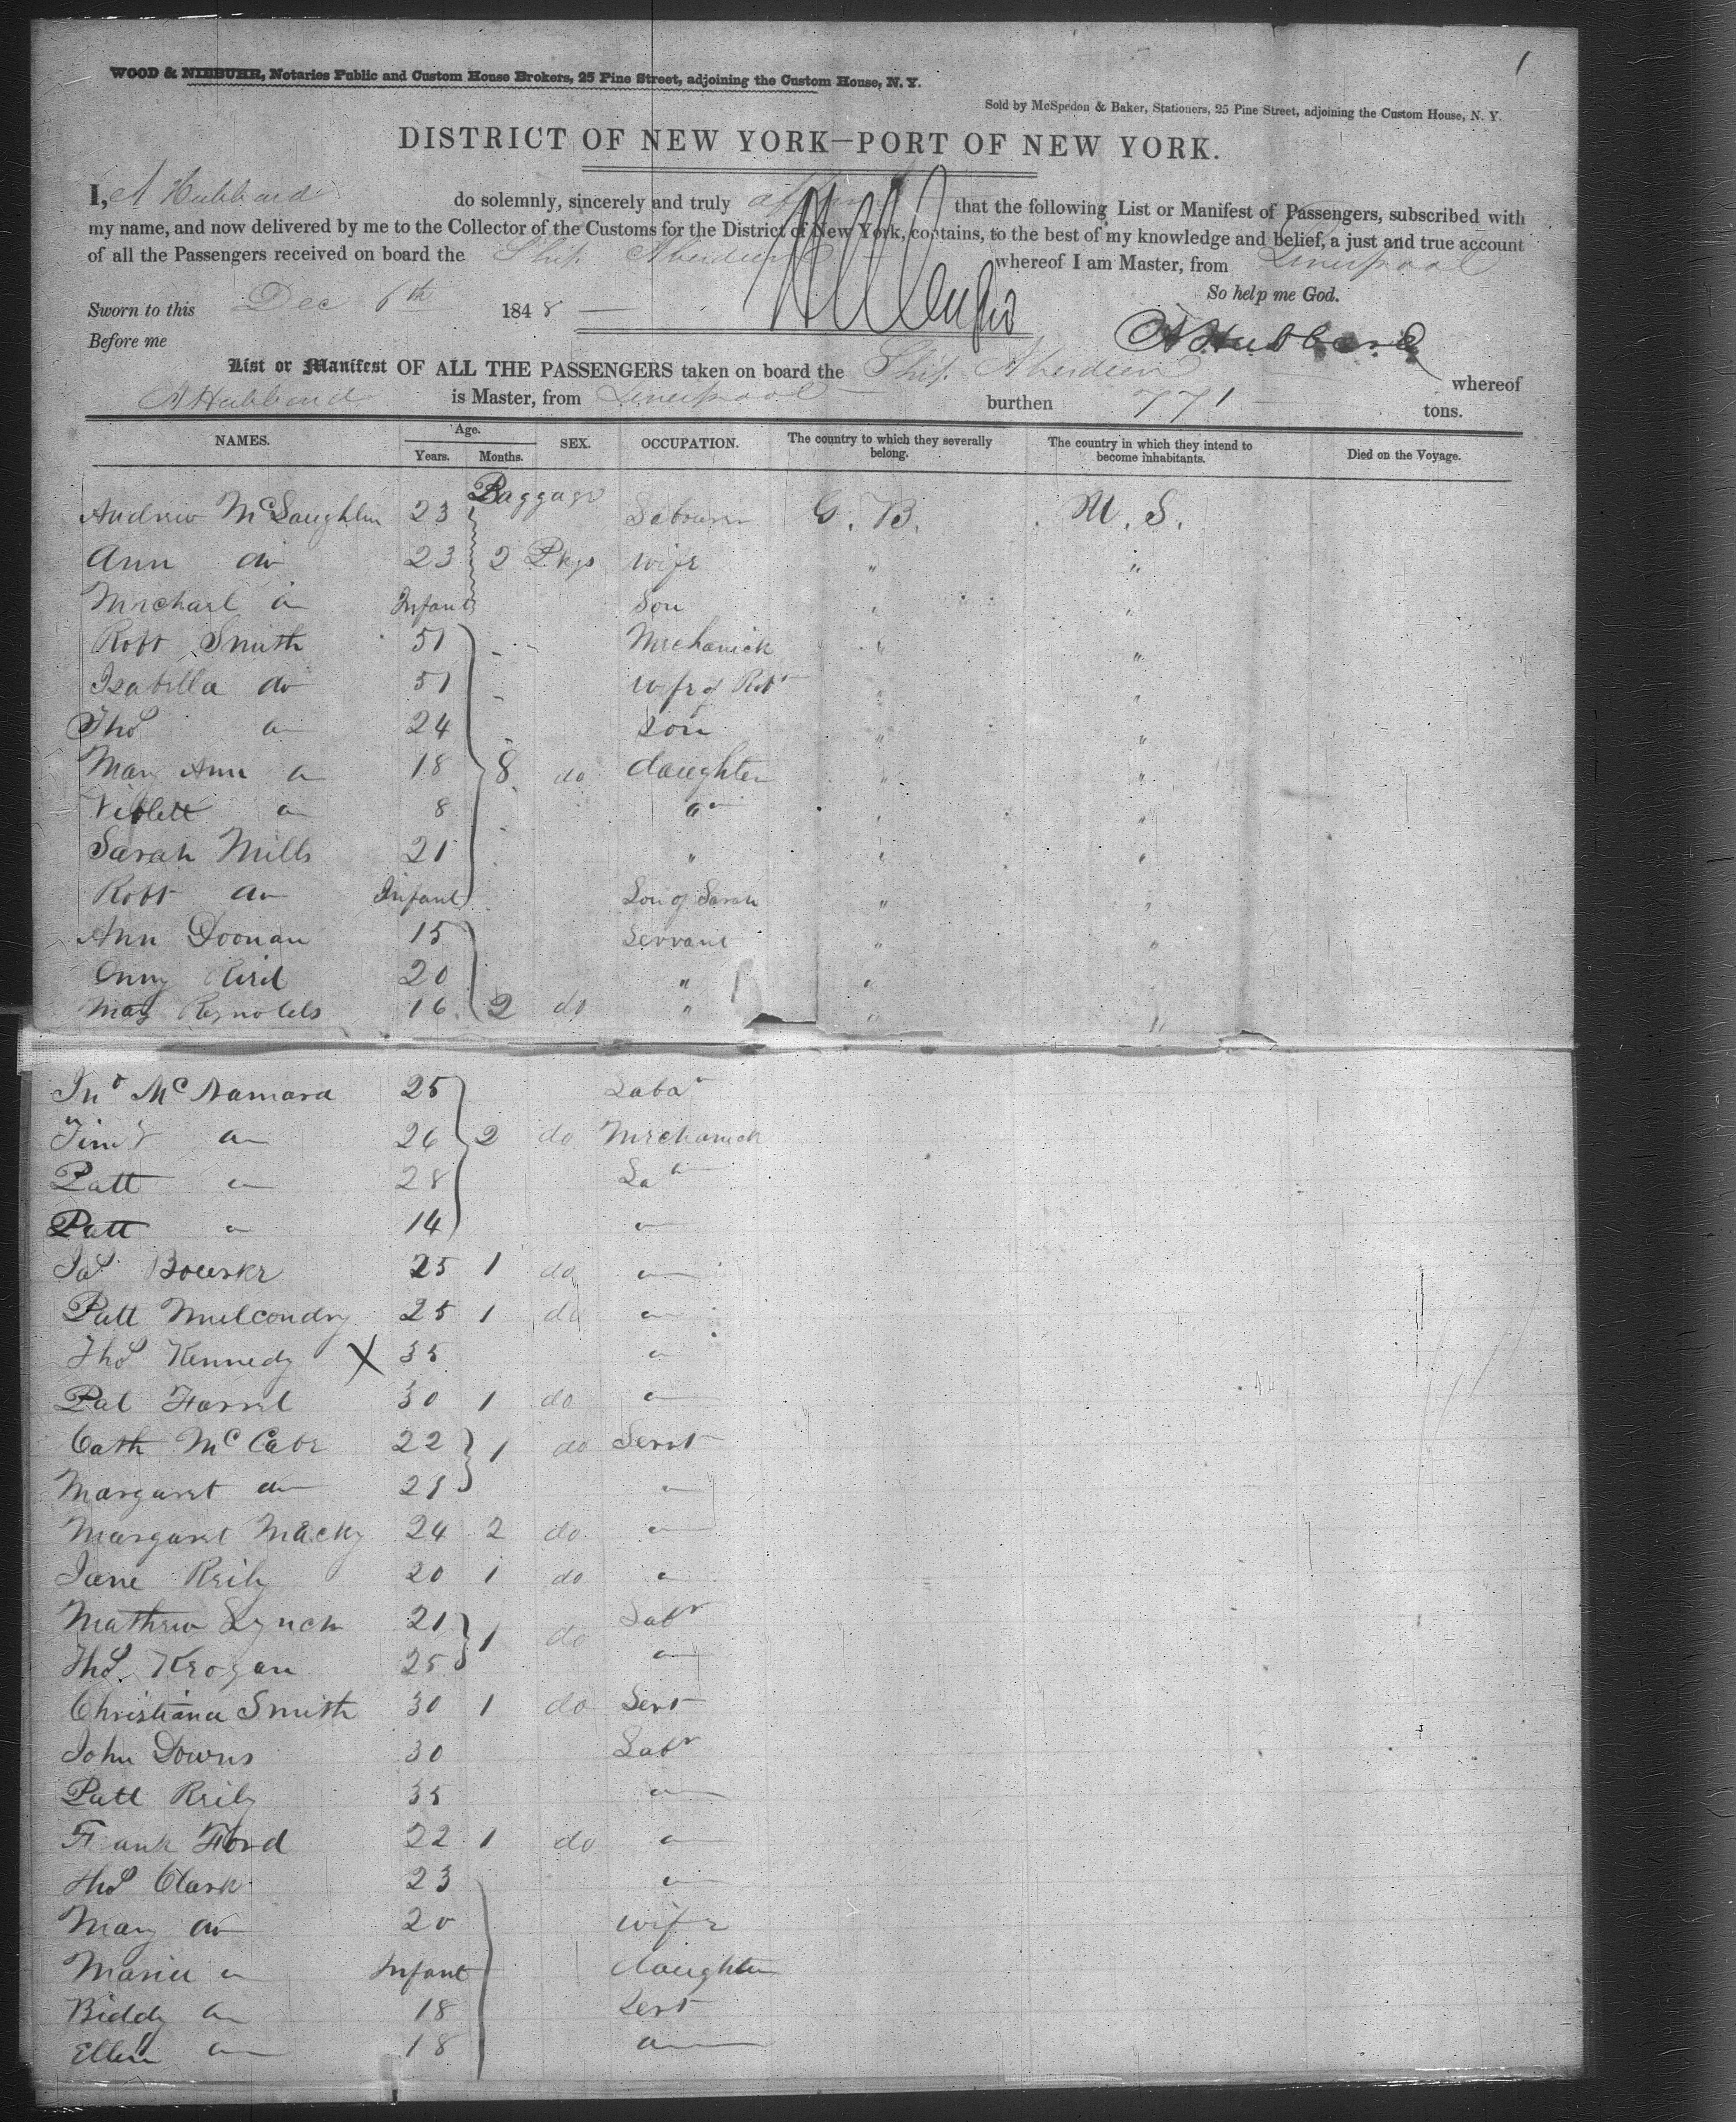 1
WOOD & NIEBUHR, Notaries Public and Custom House Brokers, 25 Pine Street, adjoining the Custom House, N. Y.
Sold by McSpedon & Baker, Stationers, 25 Pine Street, adjoining the Custom House, N. Y.
DISTRICT OF NEW YORK—PORT OF NEW YORK.
I, A Hubbard do solemnly, sincerely and truly affirm that the following List or Manifest of Passengers, subscribed with
my name, and now delivered by me to the Collector of the Customs for the District of New York, contains, to the best of my knowledge and belief, a just and true account
of all the Passengers received on board the Ship Aberdeen whereof I am Master, from Liverpool
So help me God.
Sworn to this Dec 6th 1848
A Hubbard
Before me
List or Manifest OF ALL THE PASSENGERS taken on board the Ship Aberdeen whereof
A Hubbard is Master, from Liverpool burthen 771 tons.
NAMES. Age. Years. Months. SEX. OCCUPATION. The country to which they severally belong. The country in which they intend to become inhabitants. Died on the Voyage.
Baggage
Andrew McLaughlin 23 Labourer G. B. U. S.
Ann do 23 2 Pkgs wife " "
Michael do Infant Son " "
Robt Smith 51 Mechanick " "
Isabella do 51 wife of Robt " "
Thos do 24 Son " "
Mary Ann do 18 8 do daughter " "
Violett do 8 do " "
Sarah Mills 21 " " "
Robt do Infant Son of Sarah " "
Ann Doonan 15 Servant " "
Reid 20 " " "
Mary Reynolds 16 2 do " " "
Jno McNamara 25 Labr
Timy do 26 2 do Mechanick
Patt do 28 Labr
Patt do 14 do
Jas Bourke 25 1 do do
Patt Mulcondry 25 1 do do
Thos Kennedy X 35 do
Pat Farrel 30 1 do do
Cath McCabe 22 1 do Servt
Margaret do 21 do
Margaret Macky 24 2 do do
Jane Reily 20 1 do do
Mathew Lynch 21 1 do Labr
Thos Keogan 25 do
Christiana Smith 30 1 do Servt
John Downs 30 Labr
Patt Reily 35 do
Frank Ford 22 1 do do
Thos Clark 23 do
Mary do 20 wife
Maria do Infant daughter
Biddy do 18 Servt
Ellen do 18 do